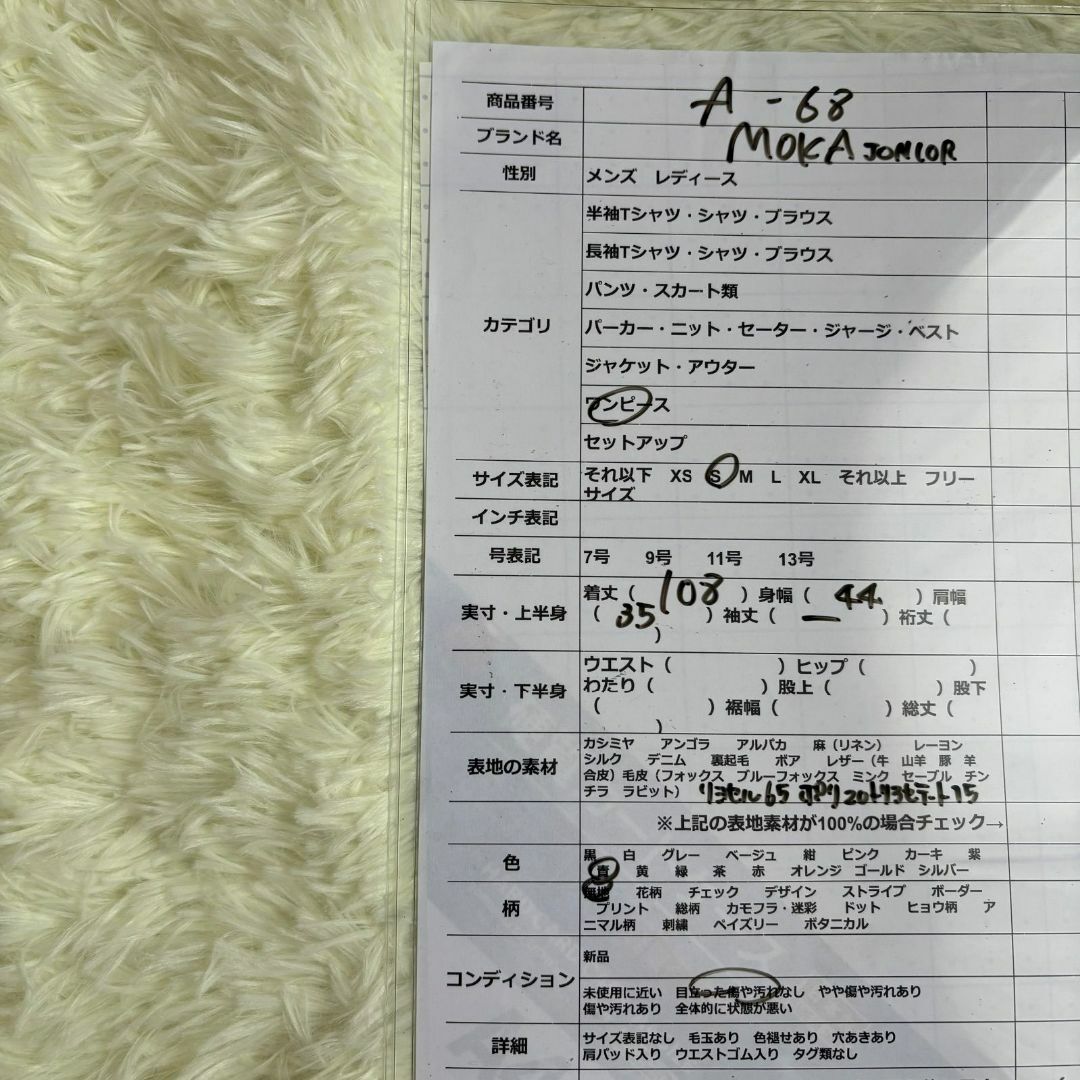 商品番号 A-68
ブランド名 MOKA JUNIOR
性別 メンズ レディース
カテゴリ
半袖Tシャツ・シャツ・ブラウス
長袖Tシャツ・シャツ・ブラウス
パンツ・スカート類
パーカー・ニット・セーター・ジャージ・ベスト
ジャケット・アウター
ワンピース
セットアップ
サイズ表記 それ以下 XS S M L XL それ以上 フリー
サイズ
インチ表記
号表記 7号 9号 11号 13号
実寸・上半身
着丈( 108 )身幅( 44. )肩幅
( 35 )袖丈( ー )裄丈(
)
実寸・下半身
ウエスト( )ヒップ( )
わたり( )股上( )股下
( )裾幅( )総丈(
)
表地の素材
カシミヤ アンゴラ アルパカ 麻(リネン) レーヨン
シルク デニム 裏起毛 ボア レザー(牛 山羊 豚 羊
合皮)毛皮(フォックス ブルーフォックス ミンク セーブル チン
チラ ラビット) リヨセル65 ポリ20トリアセテート15
※上記の表地素材が100%の場合チェック→
色
黒 白 グレー ベージュ 紺 ピンク カーキ 紫
青 黄 緑 茶 赤 オレンジ ゴールド シルバー
柄
無地 花柄 チェック デザイン ストライプ ボーダー
プリント 総柄 カモフラ・迷彩 ドット ヒョウ柄 ア
ニマル柄 刺繍 ペイズリー ボタニカル
コンディション
新品
未使用に近い 目立った傷や汚れなし やや傷や汚れあり
傷や汚れあり 全体的に状態が悪い
詳細
サイズ表記なし 毛玉あり 色褪せあり 穴あきあり
肩パッド入り ウエストゴム入り タグ類なし